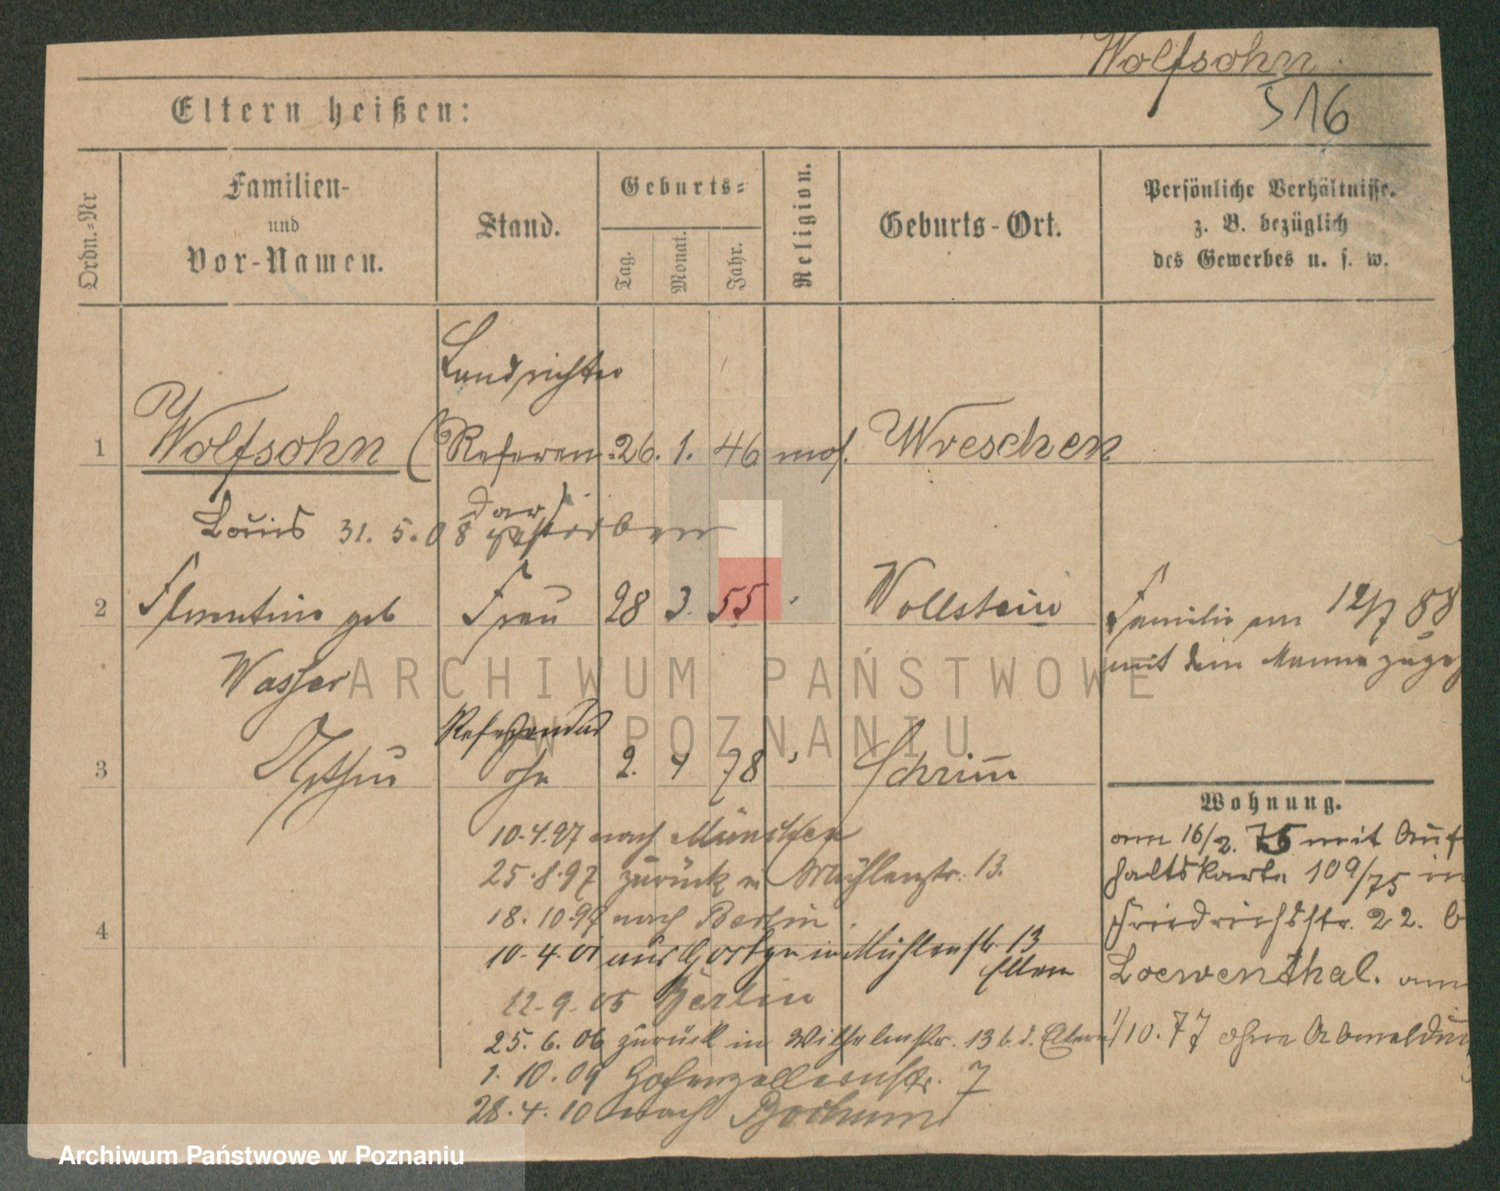 Wolfsohn
516
Eltern heißen:
Ordn.-Nr
Familien-
und
Vor-Namen.
Stand.
Geburts-
Tag.
Monat.
Jahr.
Religion.
Geburts-Ort.
Persönliche Verhältnisse.
z. B. bezüglich
des Gewerbes u. s. w.
Landrichter
1 Wolfsohn (Referen- 26. 1. 46 mos. Wreschen
dar
Louis 31. 5. 08 gestorben
2 Florentine geb Frau 28 3. 55 Wollstein
Wasser
Familie am 12/7 88
mit dem Manne zugez
Referendar
3 Arthur ohn 2. 4 78 Schrimm
10.4.97 nach München
25.8.97 zurück n Mühlenstr. 13.
18.10.97 nach Berlin
4
10.4.01 aus in Mühlenstr. 13
Eltern
12.9.05 Berlin
25.6.06 zurück in Wilhelmstr. 13 b. d. Eltern
1.10.09 Hohenzollernstr. 7
28.4.10 nach Bochum
Wohnung.
am 16/2. 75 mit Auf
haltskarte 109/75 in
Friedrichstr. 22. b
Loewenthal. am
1/10. 77 ohne Abmeldun
ARCHIWUM PAŃSTWOWE
W POZNANIU
Archiwum Państwowe w Poznaniu